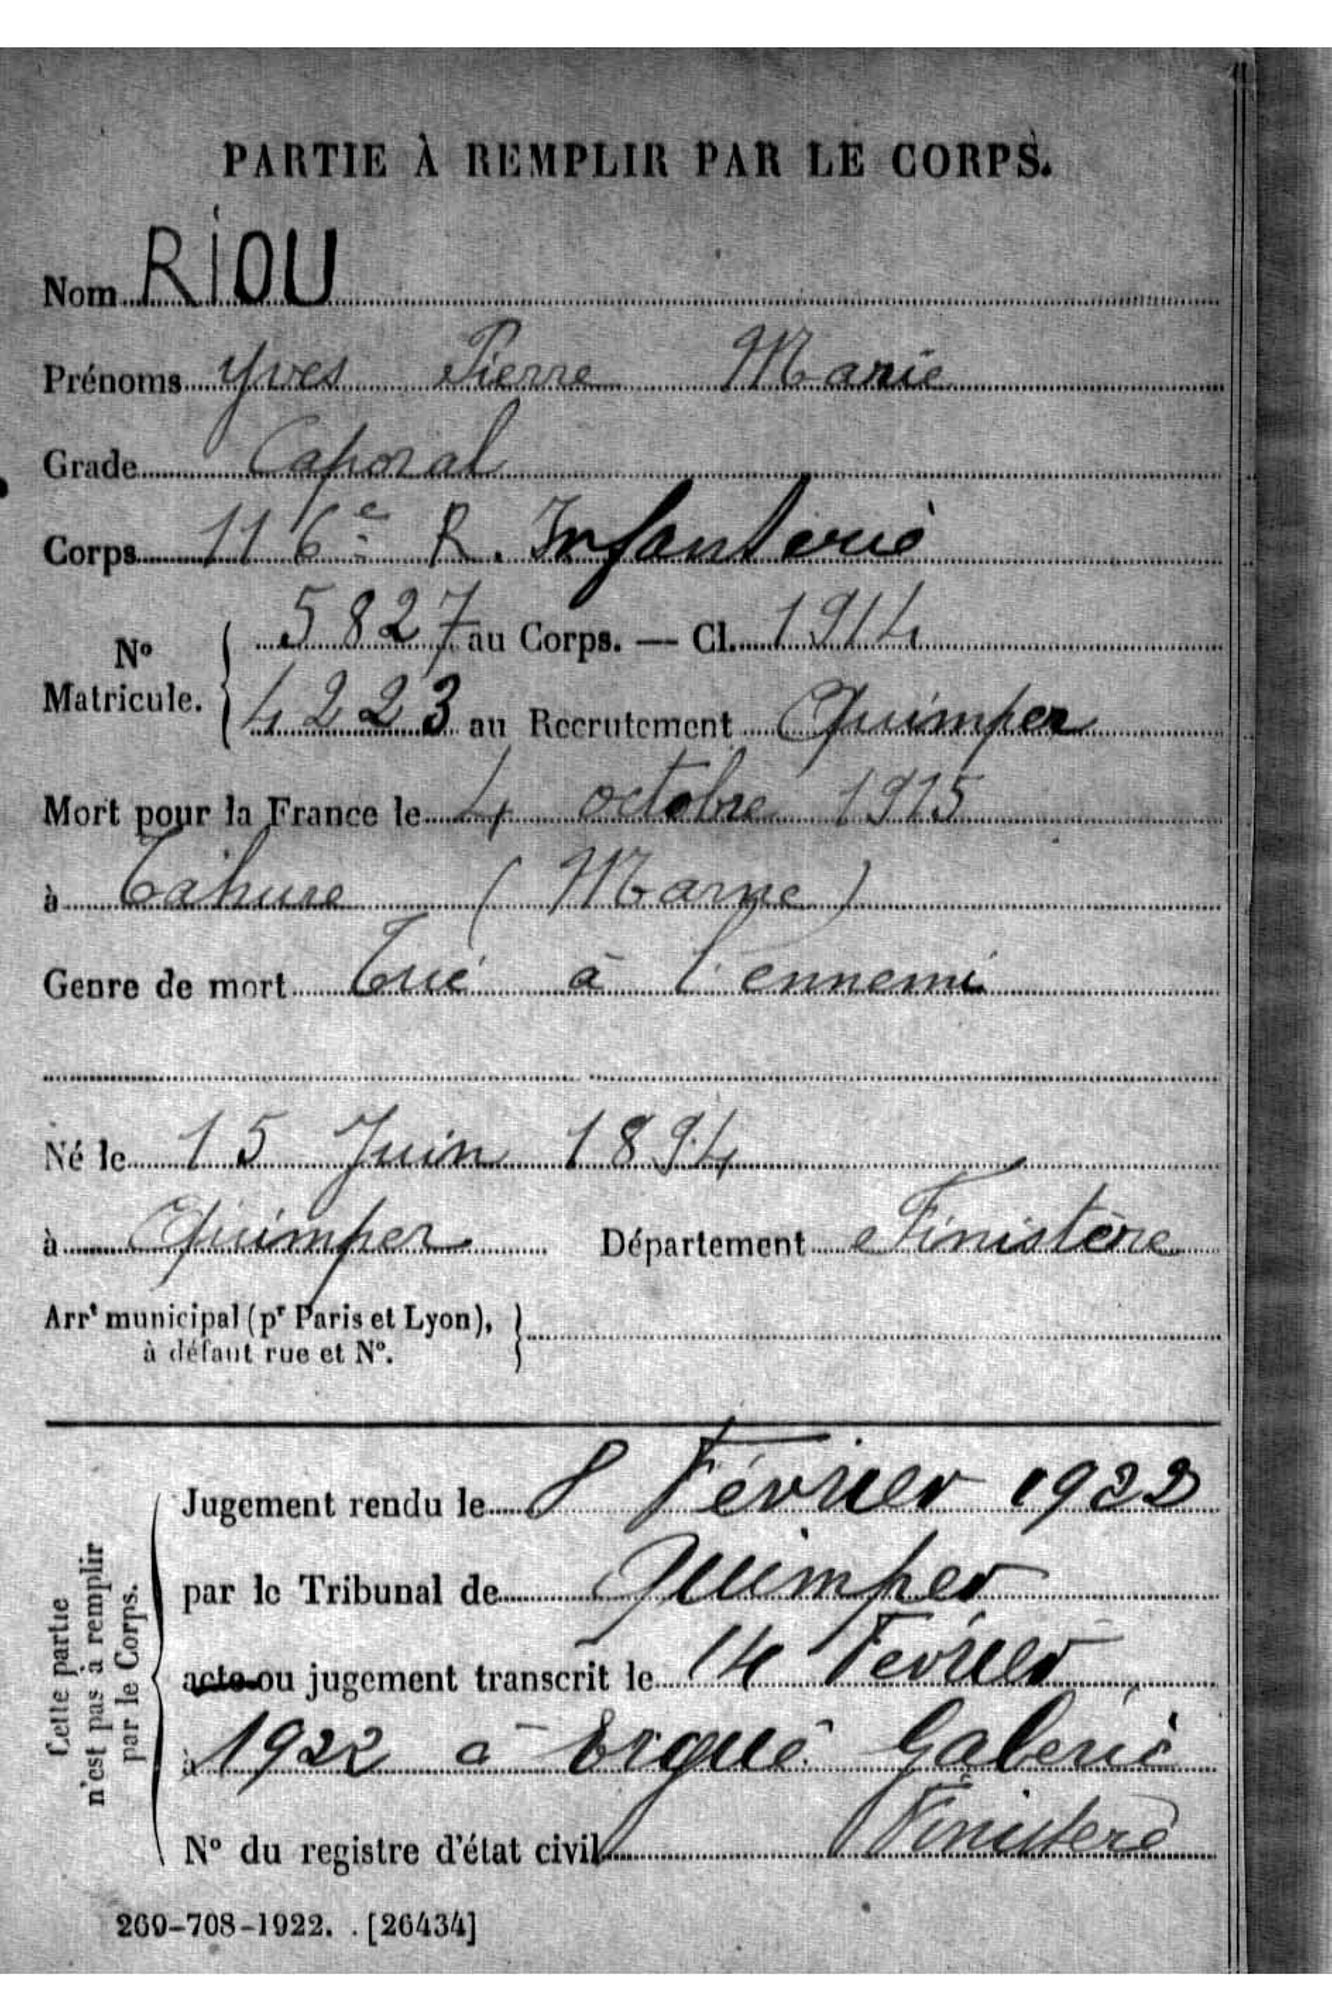 PARTIE À REMPLIR PAR LE CORPS.
Nom RIOU
Prénoms Yves Pierre Marie
Grade Caporal
Corps 116e R. Infanterie
No Matricule. { 5827 au Corps. — Cl. 1914
4223 au Recrutement Quimper
Mort pour la France le 4 octobre 1915
à Tahure (Marne)
Genre de mort Tué à l'ennemi
Né le 15 Juin 1894
à Quimper Département Finistère
Arrt municipal (pr Paris et Lyon), }
à défaut rue et No.
Cette partie
n'est pas à remplir
par le Corps.
Jugement rendu le 8 Février 1922
par le Tribunal de Quimper
acte ou jugement transcrit le 14 Février
à 1922 à Ergué Gaberic
No du registre d'état civil Finistère
269-708-1922. . [26434]